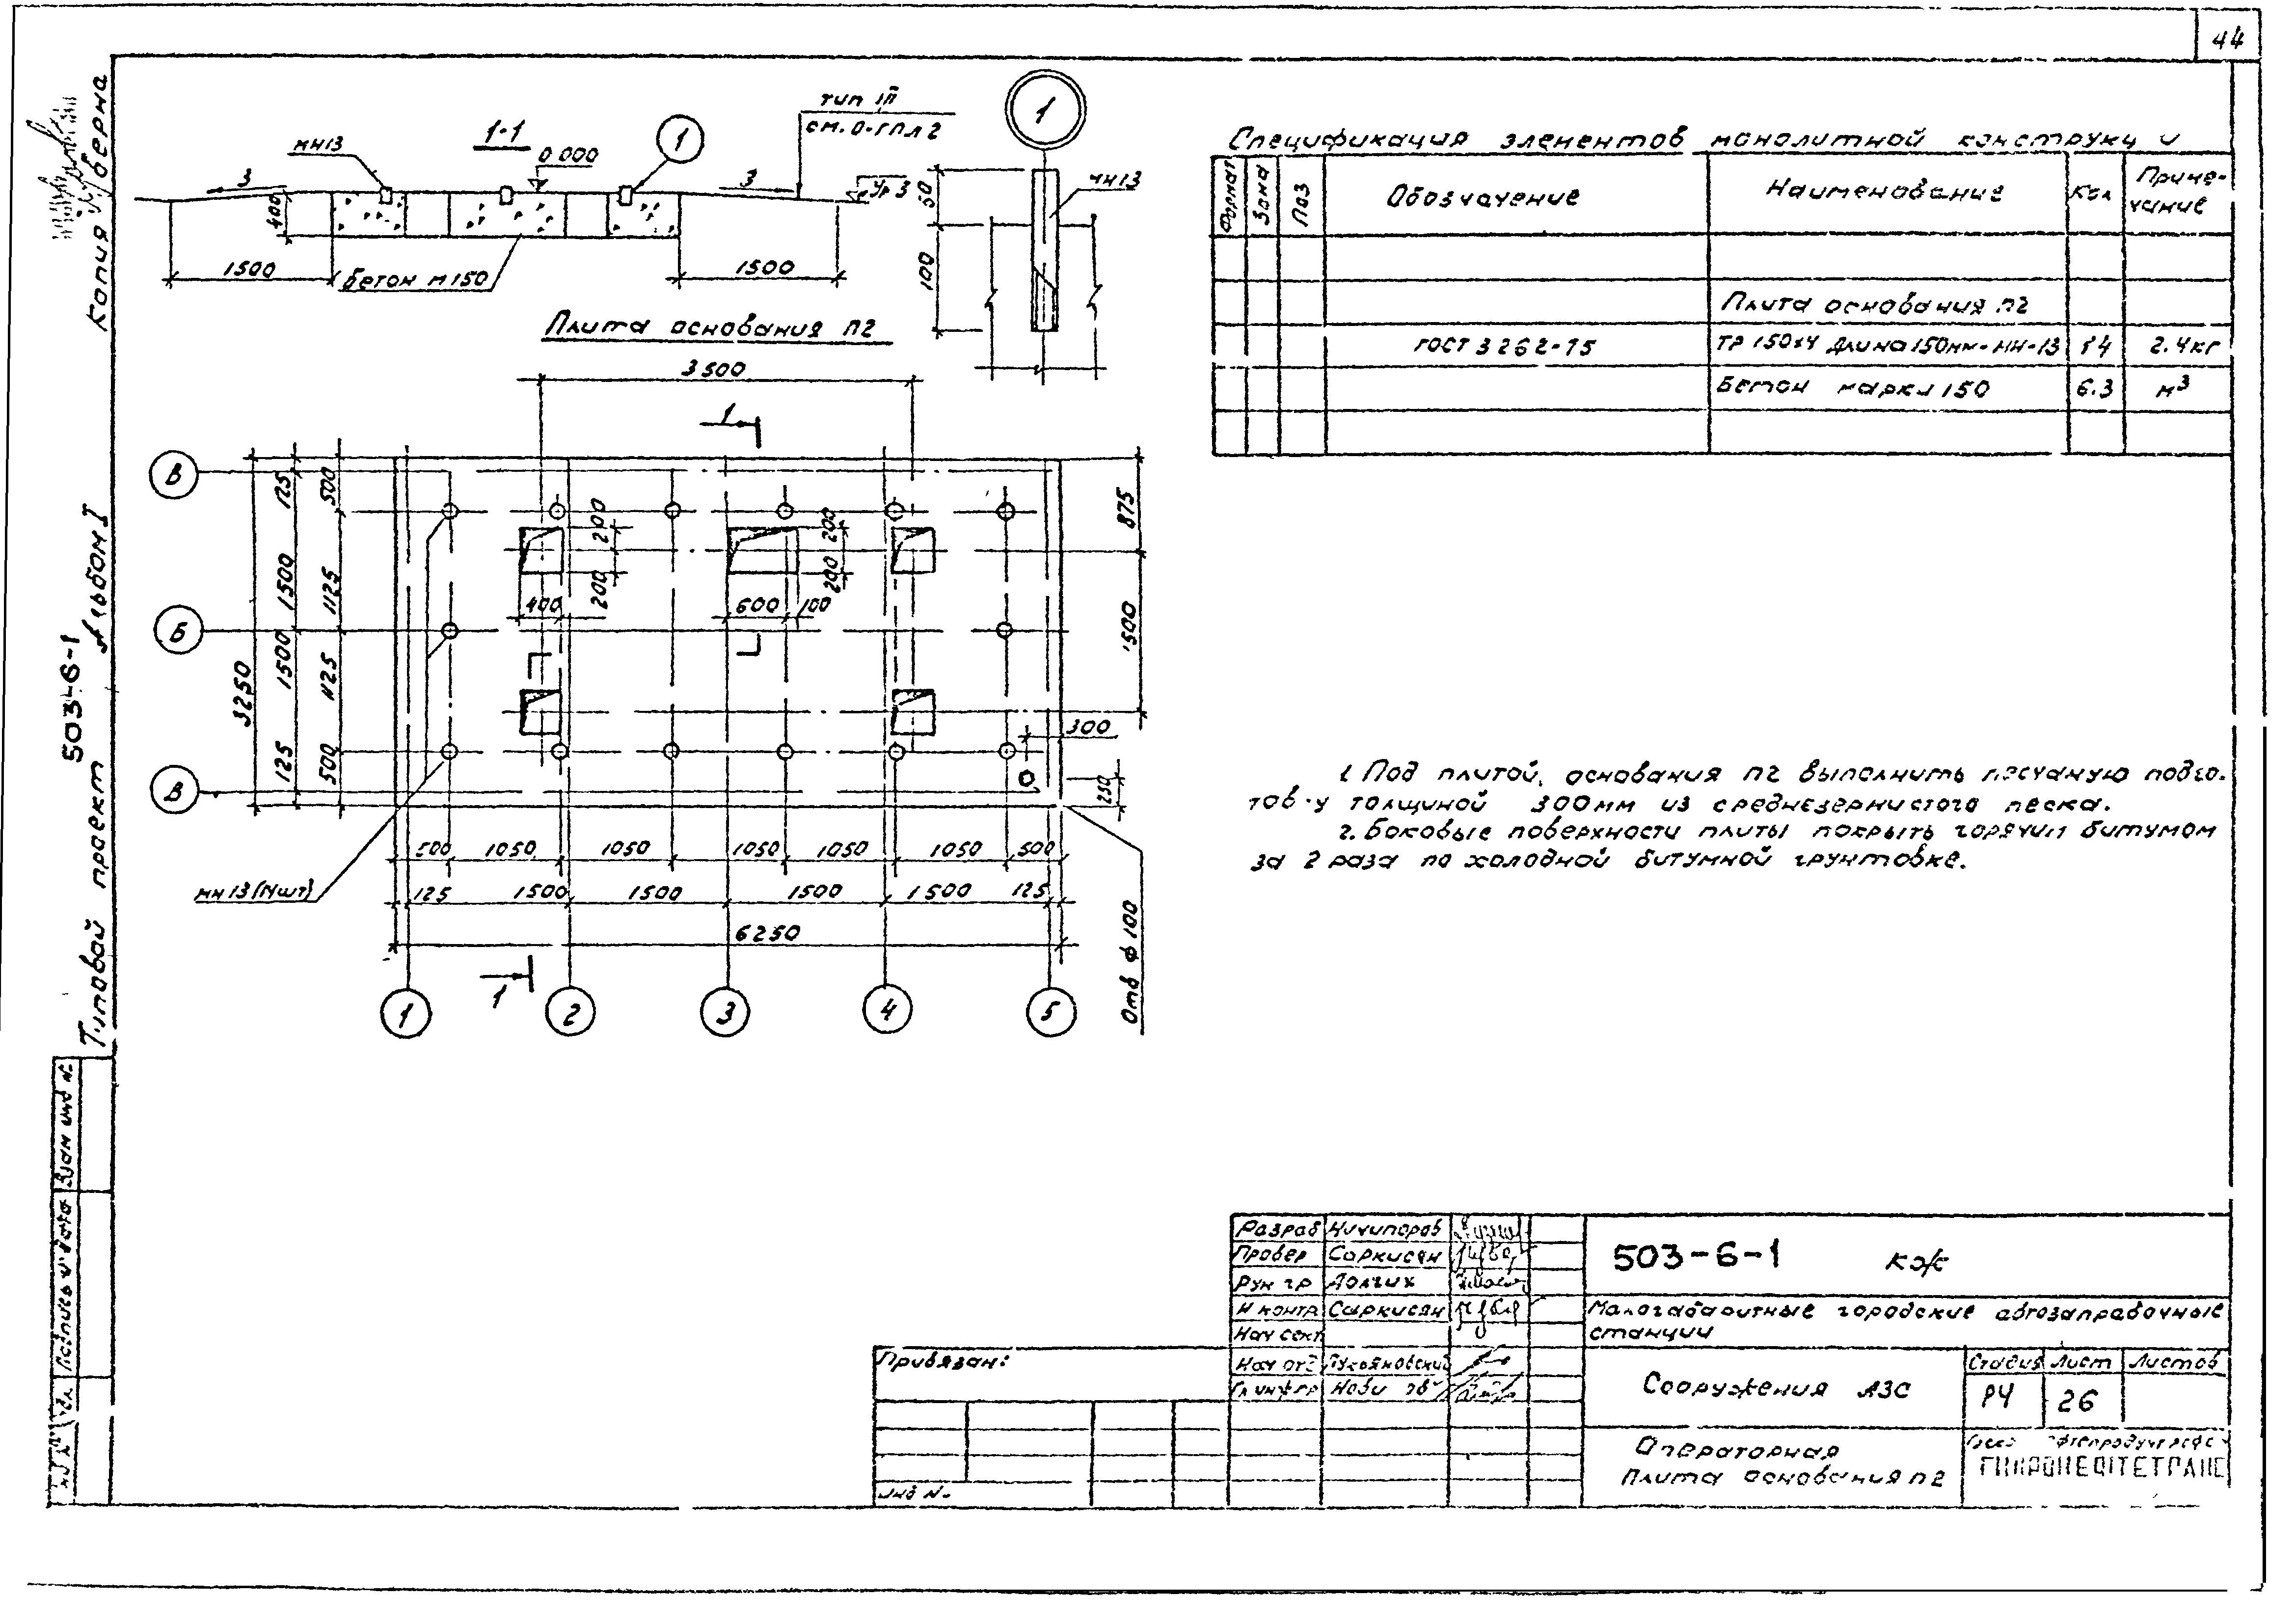 44
Копия верна
Типовой проект 503-6-1 Альбом I
1-1
МН13
0 000
1
тип III
см. О-ГПЛ2
3
3
Ур 3
400
1500
Бетон М150
1500
1
МН13
50
100
Плита основания П2
3500
1
В
Б
В
3250
125
1500
1500
125
500
1125
1125
500
200
200
200
200
400
600
100
875
1500
300
250
500 1050 1050 1050 1050 1050 500
МН 13 (14шт)
125 1500 1500 1500 1500 125
6250
1
Отв ф 100
1 2 3 4 5
Спецификация элементов монолитной конструкц и
Формат Зона Поз Обозначение Наименование Кол Приме-
чание
Плита основания П2
ГОСТ 3262-75 ТР 150х4 длина 150мм-МН-13 14 2.4кг
Бетон марки 150 6.3 м³
1. Под плитой, основания П2 выполнить песчаную подго-
тов-у толщиной 300мм из среднезернистого песка.
2. Боковые поверхности плиты покрыть горячим битумом
за 2 раза по холодной битумной грунтовке.
Взам инв N.
Подпись и дата
Разраб Ничипоров
Провер Саркисян
Рук гр Долгих
Н контр Саркисян
Нач сект
Нач отд Лукьяновский
Гл инж пр
503-6-1 КЖ
Малогабаритные городские автозаправочные
станции
Привязан:
Инв N.
Сооружения АЗС
Стадия Лист Листов
РЧ 26
Операторная
Плита основания П2
ГИПРОНЕФТЕТРАНС